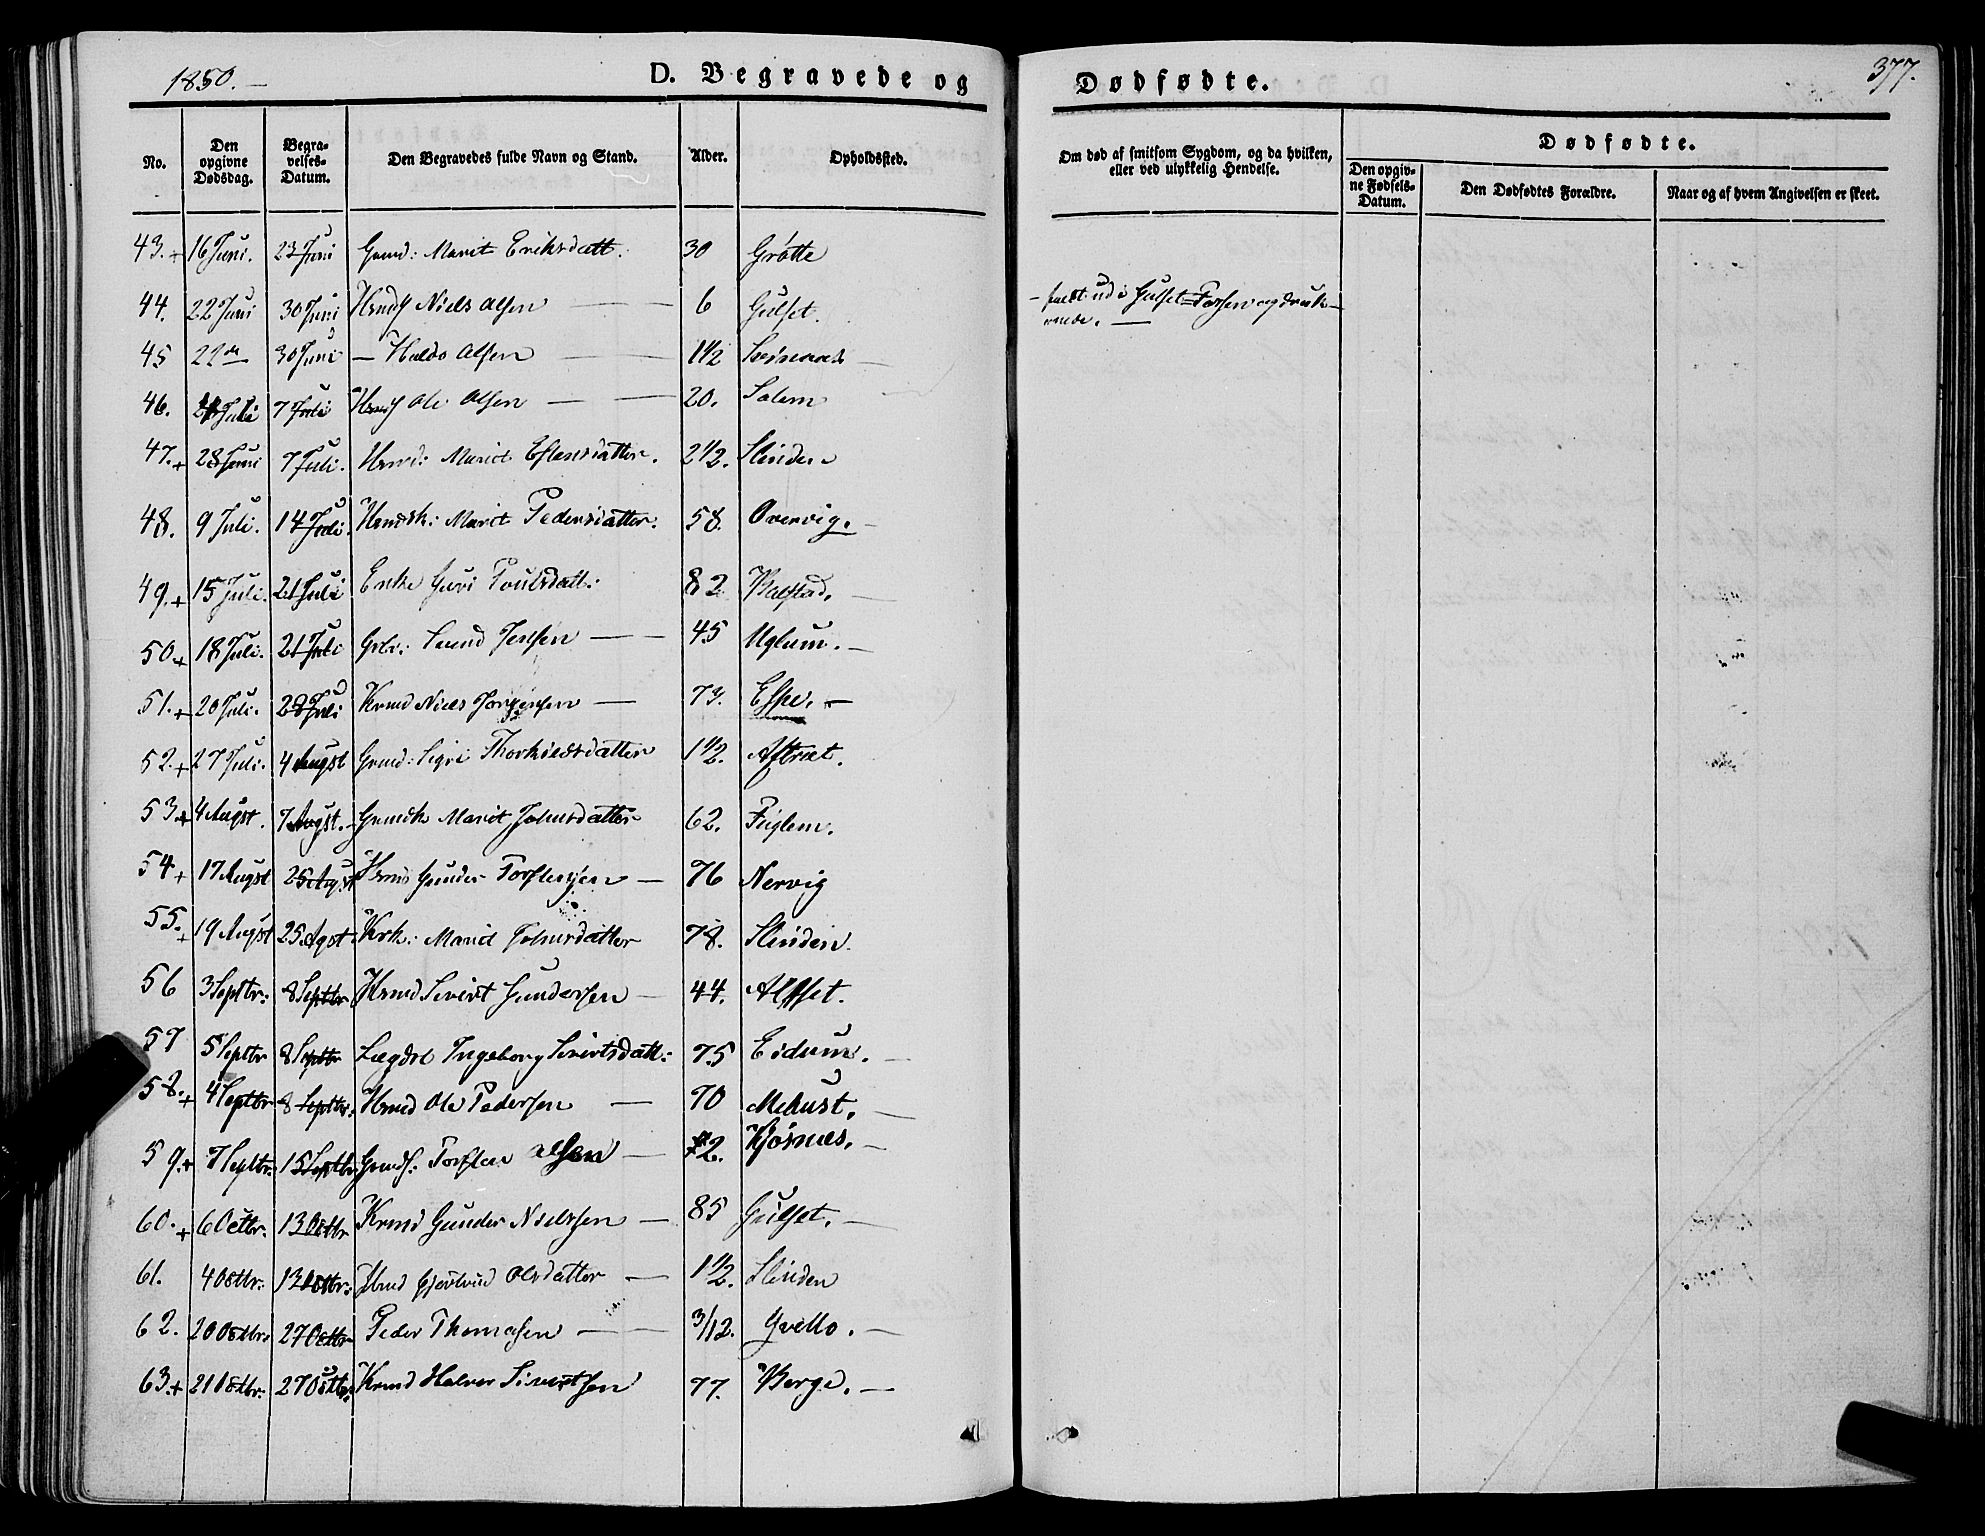 1850.
D. Begravede og
Dødfødte.
377.
No.
Den opgivne Dødsdag.
Begravelses-Datum.
Den Begravedes fulde Navn og Stand.
Alder.
Opholdssted.
Om død af smitsom Sygdom, og da hvilken, eller ved ulykkelig Hendelse.
Dødfødte.
Den opgivne Fødsels-Datum.
Den Dødfødtes Forældre.
Naar og af hvem Angivelsen er skeet.
43.+ 16 Juni. 23 Juni Grmd: Marit Eriksdatt. 30 Grøtte
44. 22 Juni 30 Juni Niels Olsen 6 Gulset.
faldt ud i Gulset-Fossen og druknede.
45 22de 30 Juni — Haldo Olsen 1 1/2
46. Juli 7 Juli Ole Olsen 20. Salem
47.+ 28 Juni 7 Juli. Hsmd: Marit Estensdatter. 2 1/2. Slinden
48. 9 Juli. 14 Juli. Hsmdsk: Marit Pedersdatter. 58. Overvig.
49.+ 15 Juli. 21 Juli Enke Guri Poulsdatt: 82 Balstad.
50.+ 18 Juli. 21 Juli Jensen 45 Uglum.
51.+ 20 Juli. 28 Juli Krmd Niels Jørgensen 73. Espe.
52.+ 27 Juli. 4 Augst Grmd: Sigri Thorkildsdatter 1 1/2. Aftret.
53.+ 4 Augst. 7 Augst. Grmdk Marit Johnsdatter 62. Fuglem.
54.+ 17 Augst 25 Augst Hsmd Gunder Torstensen 76 Nervig
55.+ 19 Augst 25. Agst. Krk: Marit Johnsdatter 78. Slinden.
56 3 Septbr: 8 Septbr Hsmd Sivert Gundersen 44. Alsset.
57 5 Septbr 8 Septbr Lægdsl Ingeborg Sivertsdatt: 75 Eidum.
58.+ 4 Septbr 8 Septbr: Hsmd Ole Pedersen 70 Mebust.
59.+ 7 Septbr. 15 Septbr Grmds: Torsten Olsen Kjøsnæs.
60.+ 6 Octbr. 13 Octbr Krmd Gunder Nielsen 85 Gulset.
61. 4 Octbr. 13 Octbr: Hsmd Gjertrud Olsdatter 1 1/2. Slinden
62. 20 Octbr. 27 Octbr Peder Thomasen 3/12. Yvello.
63.+ 21 Octbr. 27 Octbr. Krmd Halvor Sivertsen 77. Berge.